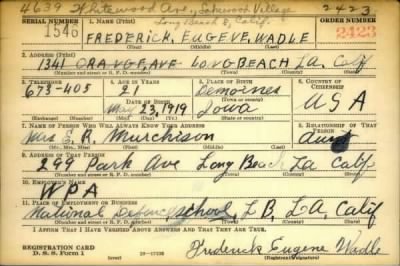 4639 Whitewood Ave., Lakewood Village 2423
Long Beach 8, Calif.
SERIAL NUMBER 1. NAME (Print) ORDER NUMBER
1546 FREDERICK, EUGEVE, WADLE 2423
(First) (Middle) (Last)
2. ADDRESS (Print)
1341 ORANGE AVE LONG BEACH LA. Calif
(Number and street or R. F. D. number) (Town) (County) (State)
3. TELEPHONE 4. AGE IN YEARS 5. PLACE OF BIRTH 6. COUNTRY OF CITIZENSHIP
673-405 21 Demoines USA
DATE OF BIRTH (Town or county)
May 23, 1919 Iowa
(Exchange) (No.) (Mo.) (Day) (Yr.) (State or country)
7. NAME OF PERSON WHO WILL ALWAYS KNOW YOUR ADDRESS 8. RELATIONSHIP OF THAT PERSON
Mrs. R. Murchison aunt
(Mr., Mrs., Miss) (First) (Middle) (Last)
9. ADDRESS OF THAT PERSON
298 Park Ave Long Beach La Calif
(Number and street or R. F. D. number) (Town) (County) (State)
10. EMPLOYER'S NAME
WPA
11. PLACE OF EMPLOYMENT OR BUSINESS
National Defence school, L B, L.A, Calif
(Number and street or R. F. D. number) (Town) (County) (State)
I AFFIRM THAT I HAVE VERIFIED ABOVE ANSWERS AND THAT THEY ARE TRUE.
REGISTRATION CARD
D. S. S. Form 1 (over) Frederick Eugene Wadle
(Registrant's signature)